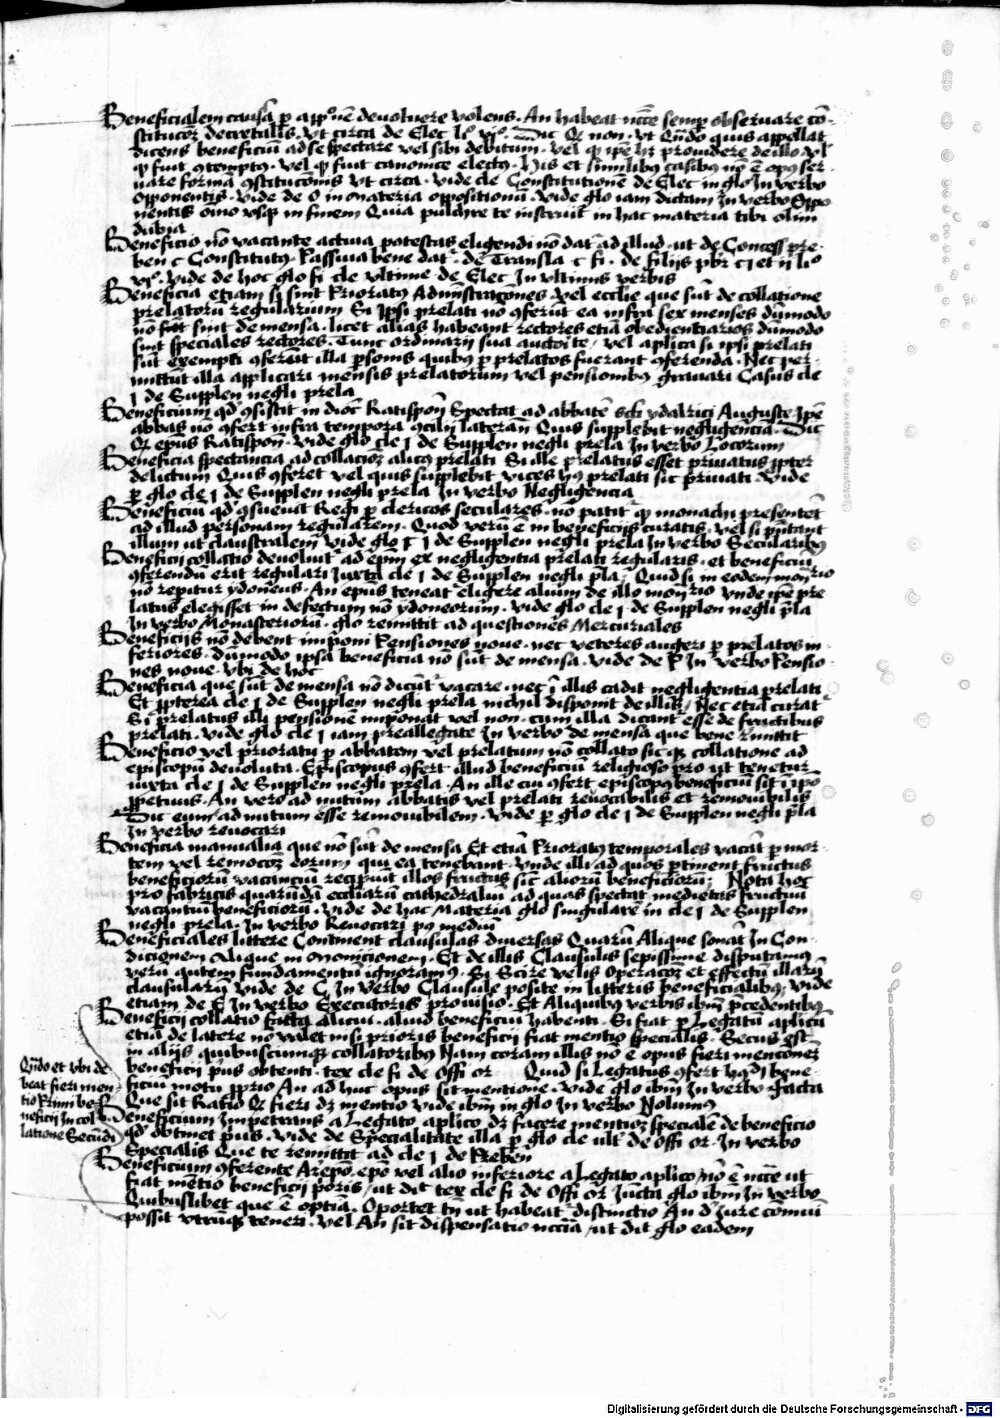 Beneficialem causā ꝑ app͞onē devoluere volens. An habeat nc͞ce semꝑ observare cō-
stitucōꝫ decretalis. vt circa de Elec li° vj°. Dic ꝙ non. vt Qn̄do quis appellat
dicens beneficiū ad se spectare vel sibi debitum. vel ꝙ ip̄e hꝫ providere de illo vl̄
ꝙ fuit ꝯtemptꝰ. vel ꝙ fuit canonice electꝰ. His et similibꝰ casibus nō ē opꝰ ser-
uare formā ꝯstitucionis vt circa. vide cle Constitutionē de Elec in glo In verbo
Opponentis. vide de O in materia oppositionū. vide glo iam dictam In verbo Oppo
nentis om̄o vsqꝫ in finem Quia pulchre te instruit in hac materia tibi olim
dubia
Beneficio nō vacante activa potestas eligendi nō dat̉ ad illud. ut de Concess pre-
ben c Constitutꝰ. Passiua bene dat̉. de Transla c fi. de filijs pbr̄ c j et ij li°
vj°. vide de hoc glo fi cle vltime de Elec In vltimis verbis
Beneficia etiam si sint Prioratꝰ Admīstragōnes. vel eccl̄ie que sūt de collatione
prelatorū regularium Si Ipsi prelati nō ꝯferūt ea infra sex menses dūmodo
nō sint de mensa. licet alias habeant rectores etiā obedientiarios dūmodo
sint speciales rectores. Tunc ordinarij sua auctōte, vel aplica si ipsi prelati
sūt exempti ꝯferūt illa ꝑsonis quibꝰ ꝑ prelatos fuerant ꝯferenda. Nec per-
mittūt illa applicari mensis prelatorum vel pensionibꝰ grauari Casus cle
j de Supplen negli prela
Beneficium qd̄ ꝯsistit in dioc̄ Ratispon̄ Spectat ad abbatē sc̄i ydalrici Auguste Ip̄e
abbas nō ꝯfert infra tempora ꝯcilij lateran̄ Quis supplebit negligencia. Dic
ꝙ ep̄us Ratispon̄. vide glo cle j de Supplen negli prela In verbo Locorum
Beneficia spectancia ad collacioꝫ alicꝰ prelati Si ille prelatus esset privatus ꝓpter
delictum Quis ꝯferet vel quis supplebit vices hꝰ prelati sic privati. vide
ꝑ glo cle j de Supplen negli prela In verbo Negligencia
Beneficiū qd̄ ꝯsueuit Regi ꝑ clericos seculares. nō patit̉ ꝙ monachi presentet̄
ad illud personam regularem. Quod verū ē in beneficijs curatis. vel si p̄ntant
illum ut claustralem vide glo j de Supplen negli prela In verbo Secularibꝰ
Beneficij collatio devoluit̉ ad ep̄m ex negligentia prelati regularis. et beneficiū
ꝯferendū erit regulari Iuxta cle j de Supplen negli p̄la, Quid si in eodem mon̄rio
nō reꝑitur ydoneus. An ep̄us teneat̉ eligere alium de illo mon̄rio vnde ip̄e pre
latus elegisset in defectum nō ydoneorum. vide glo cle j de Supplen negli p̄la
In verbo Monasteriorū. glo remittit ad questiones Mercuriales
Beneficijs nō debent imponi Pensiones noue. nec veteres augeri ꝑ prelatos in-
feriores. dūmodo ipsa beneficia nō sūt de mensa. vide de P In verbo Pensio-
nes noue. vbi de hoc
Beneficia que sūt de mensa nō dicūt̉ vacare. nec ī illis cadit negligentia prelati
Et ꝓpterea cle j de Supplen negli prela nichil disponit de illis, Nec etiā curat̉
Si prelatus illi pensionē imponat vel non. cum illa dicant̉ esse de fructibus
prelati. vide glo cle j iam preallegate In verbo de mensa que bene r̄mittit
Beneficio vel prioratu ꝑ abbatem vel prelatum nō collato sicqꝫ collatione ad
episcopū deuoluta. Episcopus ꝯfert illud beneficiū religioso pro ut tenetur
iuxta cle j de Supplen negli prela. An ille cui ꝯfert episcopꝰ beneficiū sit ī ip̄o
ꝑpetuus. An vero ad nutum abbatis vel prelati revocabilis et remouibilis
Dic eum ad nutum esse remouibilem. vide ꝑ glo cle j de Supplen negli p̄la
In verbo revocari
Beneficia manualia que nō sūt de mensa Et etiā Prioratꝰ temporales vacāt ꝑ mor-
tem vel remocōꝫ eorum qui ea tenebant. vnde illi ad quos ꝑtinent fructus
beneficiorū vacanciū recipiūt illos fructus sic̄ aliorū beneficiorū, Nota hoc
pro fabricis quarūdā eccliarū cathedraliū ad quas spectat medietas fructuū
vacantiū beneficiorū. vide de hac Materia glo singularē in cle j de Supplen
negli prela. In verbo Reuocari pꝰ mediū
Beneficiales littere Continent clausulas diuersas Quarū Alique sonāt In Con-
dicionem Alique in monicionem. Et de illis Clausulis sepissime disputamus
verū autem fundamentū ignoramꝰ. Si Scire velis Operacōꝫ et effectū illarū
clausularū vide de C In verbo Clausule posite in litteris beneficialibꝰ, vide
etiam de E In verbo Executoris provisio. Et Aliquibꝰ verbis ibm̄ p̄cedentibꝰ
Beneficij collatio facta alicui. aliud beneficiū habenti. Si fiat ꝑ Legatū aplicū
etiā de latere nō valet nisi prioris beneficij fiat mentio specialis. Secus est
in alijs quibuscumqꝫ collatoribꝰ Nam coram illis nō ē opus fieri mencionē
beneficij pꝰ obtenti. tex cle fi de Offi or Quid si Legatus ꝯfert hm̄oi bene-
ficiū motu ꝓprio An ad huc opus sit mentione. vide glo ibm̄ In verbo facta
Que sit Ratio ꝙ fieri dꝫ mentio vide ibm̄ in glo In verbo Nolumꝰ
Beneficium Impetrans a Legato aplico dꝫ facere mentioꝫ specialē de beneficio
qd̄ obtinet pꝰus. vide de Specialitate illa ꝑ glo cle ult̄ de Offi or. In verbo
Specialis Que te remittit ad cle j de Preben
Beneficium ꝯferente Arep̄o. ep̄o vel alio inferiore a Legato aplico, nō ē nc͞ce ut
fiat mētio beneficij p̄oris, ut dic̄ tex cle fi de Offi or Iūcta glo ibm̄ In verbo
Quibuslibet que ē optīa. Oportet tn̄ ut habeat̉ distinctio An d' Iure cōmuni
possit vtrūqꝫ teneri. vel An sit dispensatio nccīa, ut dic̄ glo eadem
Qn̄do et vbi de
beat fieri men
tio Primi be-
neficij In col
latione Secūdi
Digitalisierung gefördert durch die Deutsche Forschungsgemeinschaft - DFG